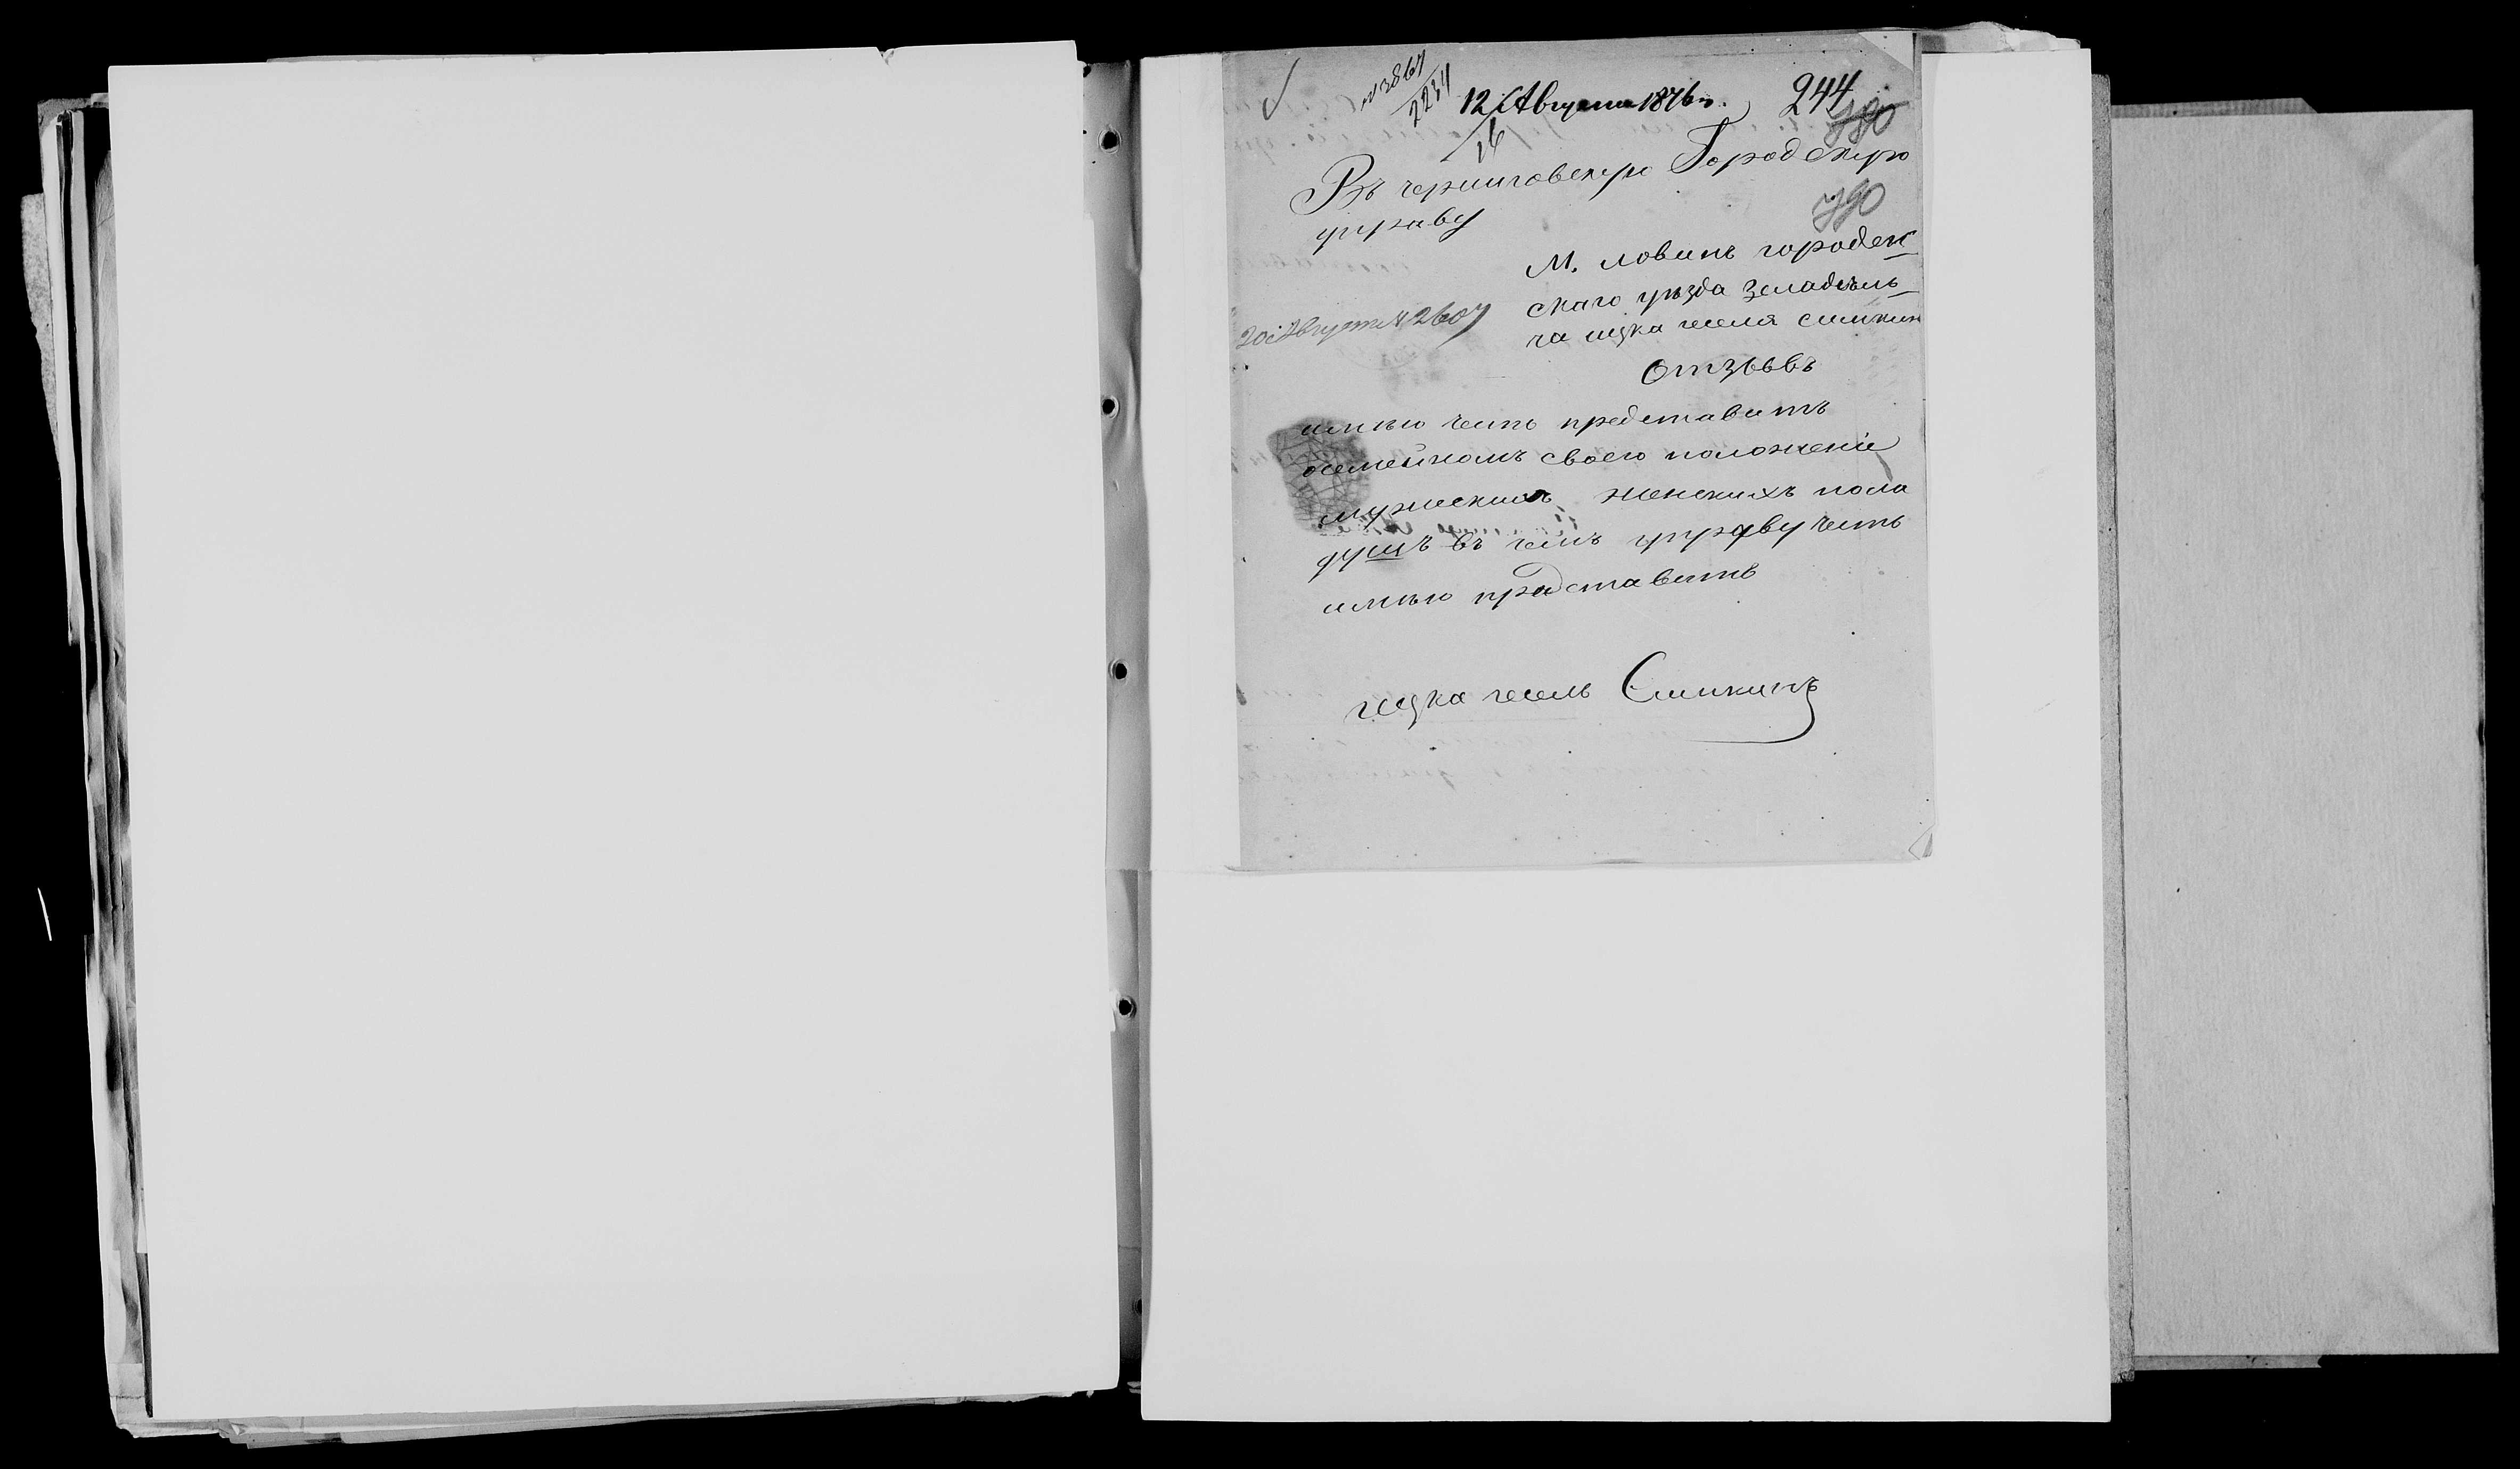 № 3867
2234
12 Августа 1876 г.
244
16
780
Въ черниговскую Городскую
управу
790
М. ловинь городен
скаго уѣзда Земладѣль
ца ицка геселя симкин
Отзывъ
20 Августа № 2607
имѣю честь представить
осемейномъ своего положеніе
мужескихъ женскихъ пола
душъ въ чемъ управу честь
имѣю представить
ицка гесель Симкинъ